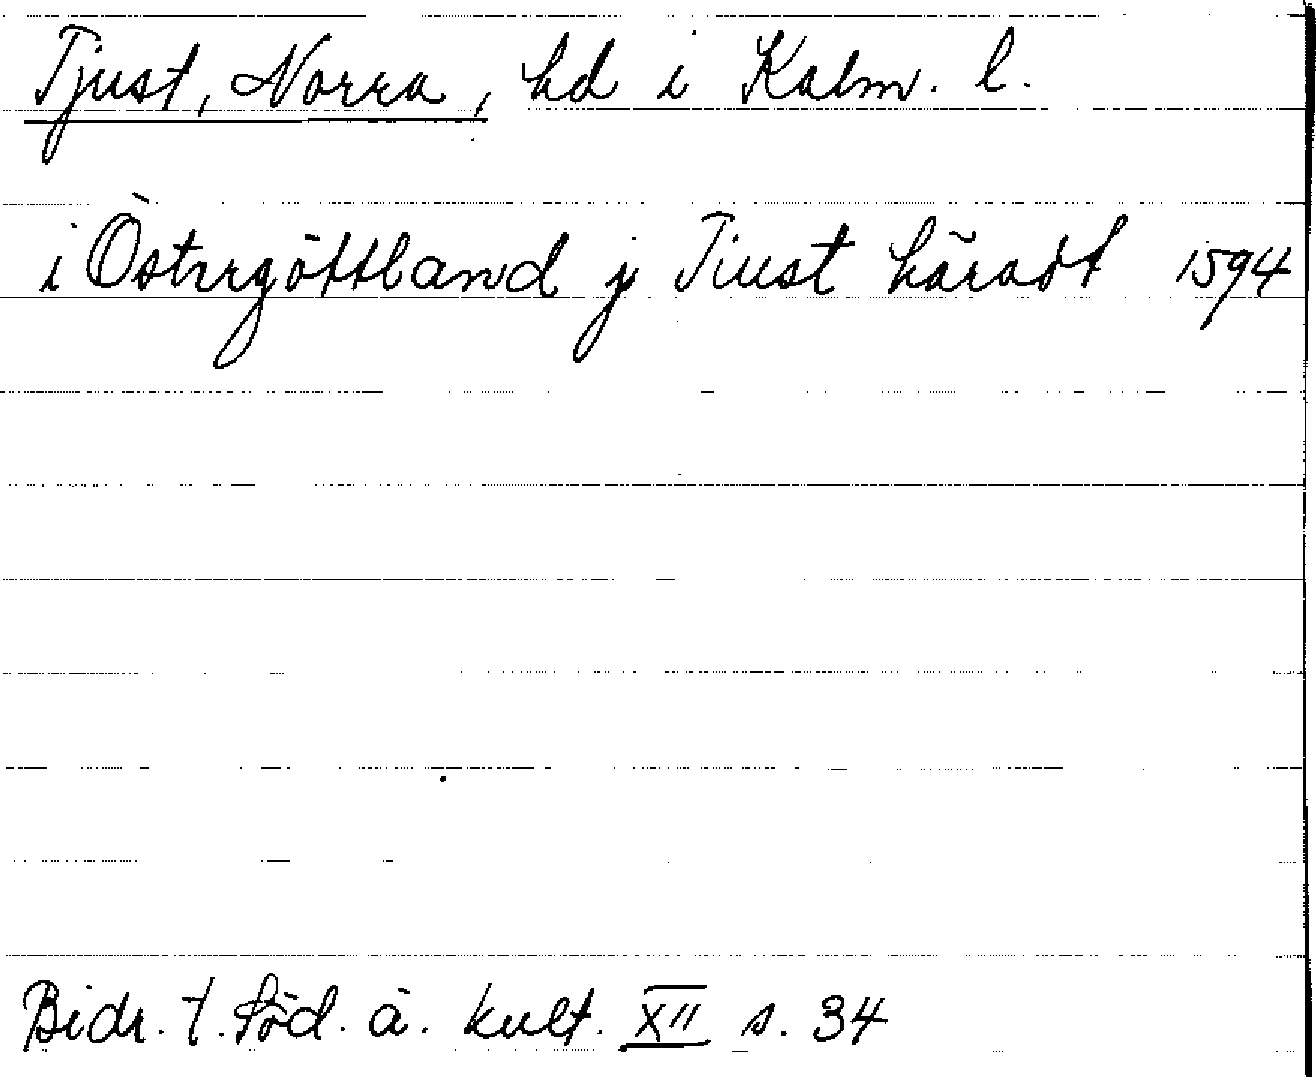 Tjust, Norra, hd i Kalm. l.
i Östrgöttland j Tiust häradt 1594
Bidr. t. Söd. ä. kult. XII s. 34